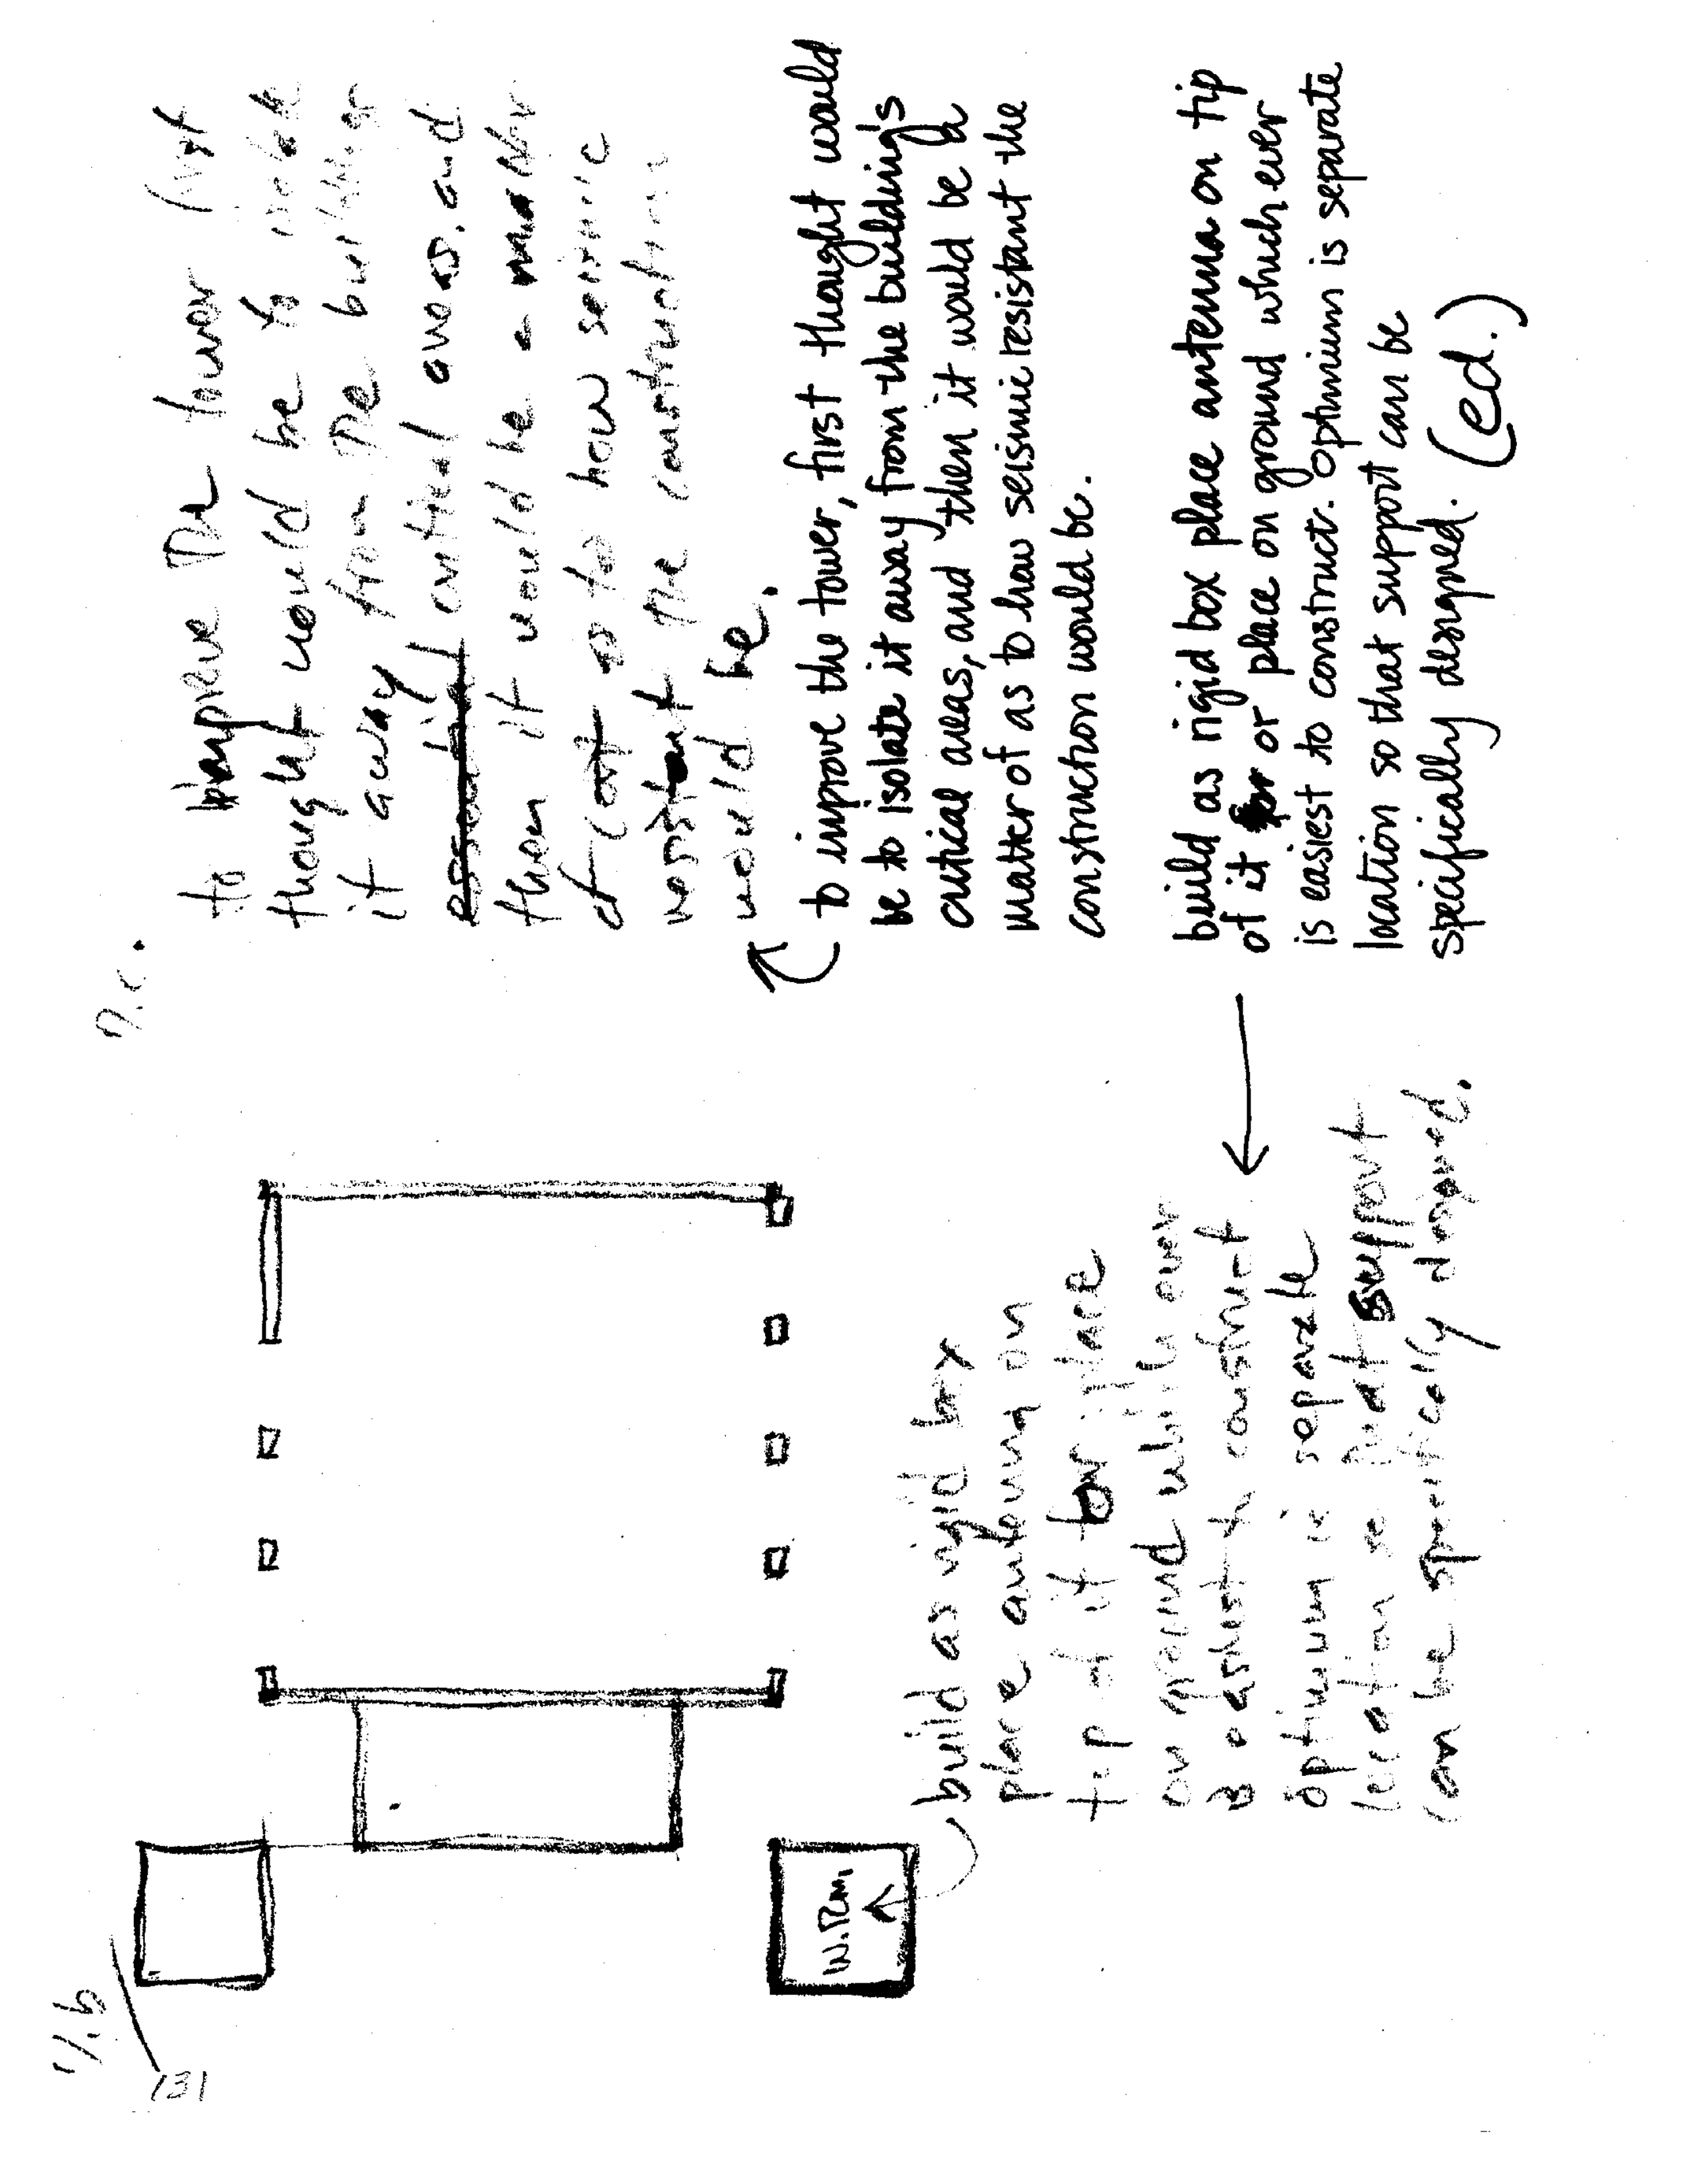 7.b
131
W.Rm.
build as rigid box
place antenna on
top of it or place
on ground which ever
is easiest to construct
optimum is separate
location so that support
can be specifically designed.
7.c.
to improve the tower first
thought would be to isolate
it away from the buildings
essential critical areas. and
then it would be a matter
of as to how seismic
resistant the construction
would be.
to improve the tower, first thought would
be to isolate it away from the building's
critical areas, and then it would be a
matter of as to how seismic resistant the
construction would be.
build as rigid box place antenna on tip
of it or place on ground which ever
is easiest to construct. optimium is separate
location so that support can be
specifically designed. (ed.)